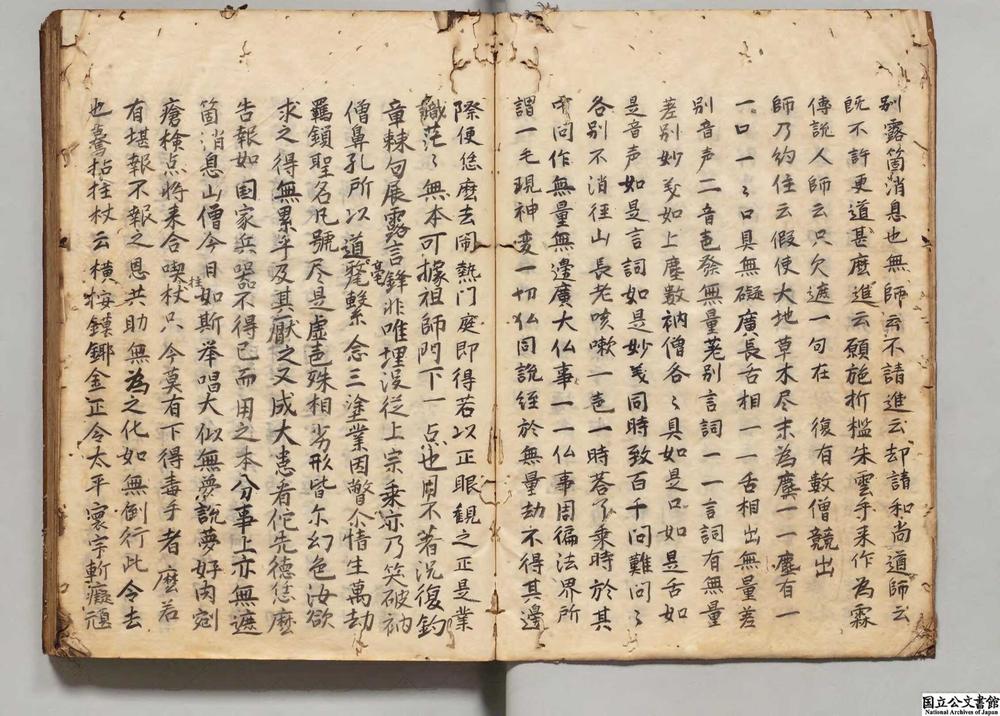 別露箇消息也無師云不請進云却請和尚道師云
既不許更道甚麽進云願施折檻朱雲手来作為霖
傳說人師云只欠遮一句在　復有數僧競出
師乃約住云假使大地草木尽末為塵一一塵有一
一口一〻口具無礙廣長舌相一一舌相出無量差
別音声二音色發無量差別言詞一一言詞有無量
差別妙义如上塵數衲僧各〻具如是口如是舌如
是音声如是言詞如是妙义同時致百千問難問〻
各別不消徑山長老咳嗽一色一時荅了乘時於其
中問作無量無邊廣大仏事一一仏事周徧法界所
謂一毛現神变一切仏同說経於無量劫不得其邊
際便恁麽去閙熱門庭即得若以正眼観之正是業
識茫〻無本可據祖師門下一点也用不著況復鈎
章棘句展露言鋒非唯埋没従上宗乘亦乃笑破衲
僧鼻孔所以道毫氂繫念三塗業因瞥尔情生萬劫
羈鎖聖名凡號尽是虚色殊相劣形皆尔幻色汝欲
求之得無累乎及其厭之又成大患看佗先徳恁麽
告報如国家兵器不得已而用之本分事上亦無遮
箇消息山僧今日如斯举唱大似無夢說夢好肉剜
瘡検点将来合喫拄杖只今莫有下得毒手者麽若
有堪報不報之恩共助無為之化如無倒行此令去
也驀拈拄杖云横按鏌鎁全正令太平寰宇斬癡頑
国立公文書館
National Archives of Japan